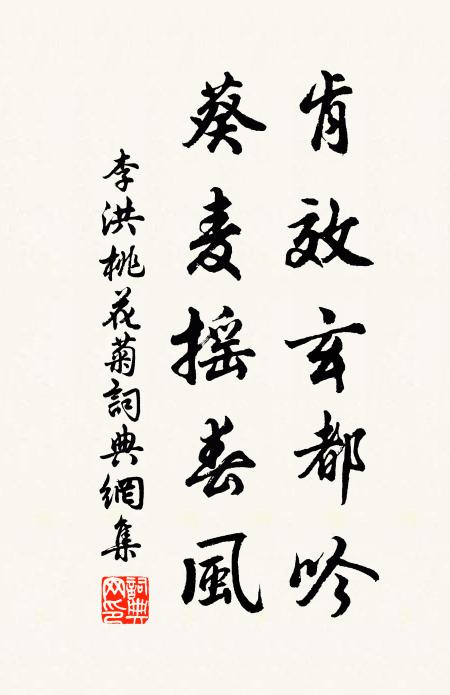 肯效玄都吟
葵麦摇春風
李洪桃花菊詞典網集
詞典網印